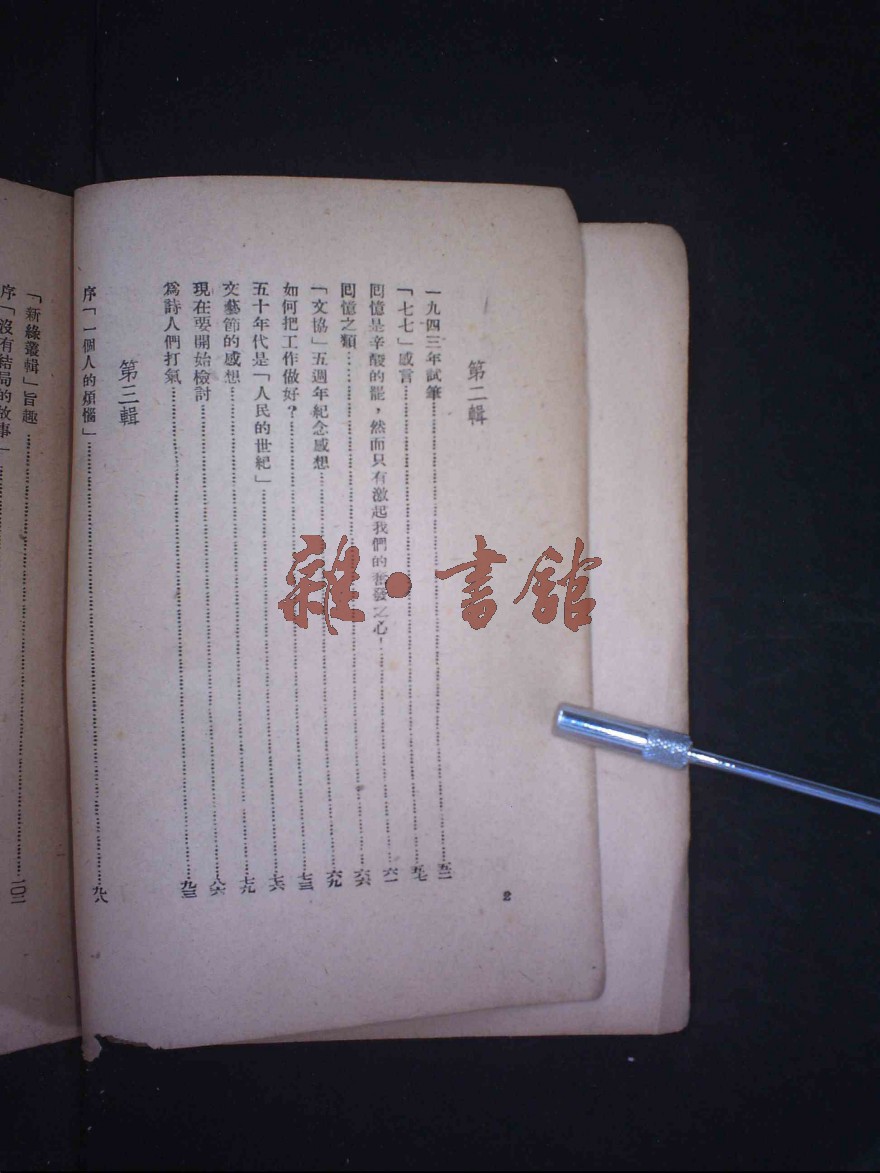 第二輯
一九四三年試筆……五二
「七七」感言……五七
回憶是辛酸的罷，然而只有激起我們的奮發之心！……六一
回憶之類……六六
「文協」五週年紀念感想……六九
如何把工作做好？……七三
五十年代是「人民的世紀」……七六
文藝節的感想……七九
現在要開始檢討……八六
為詩人們打氣……九三
第三輯
序「一個人的煩惱」……九八
2
「新綠叢輯」旨趣……一〇二
序「沒有結局的故事」
雜·書館